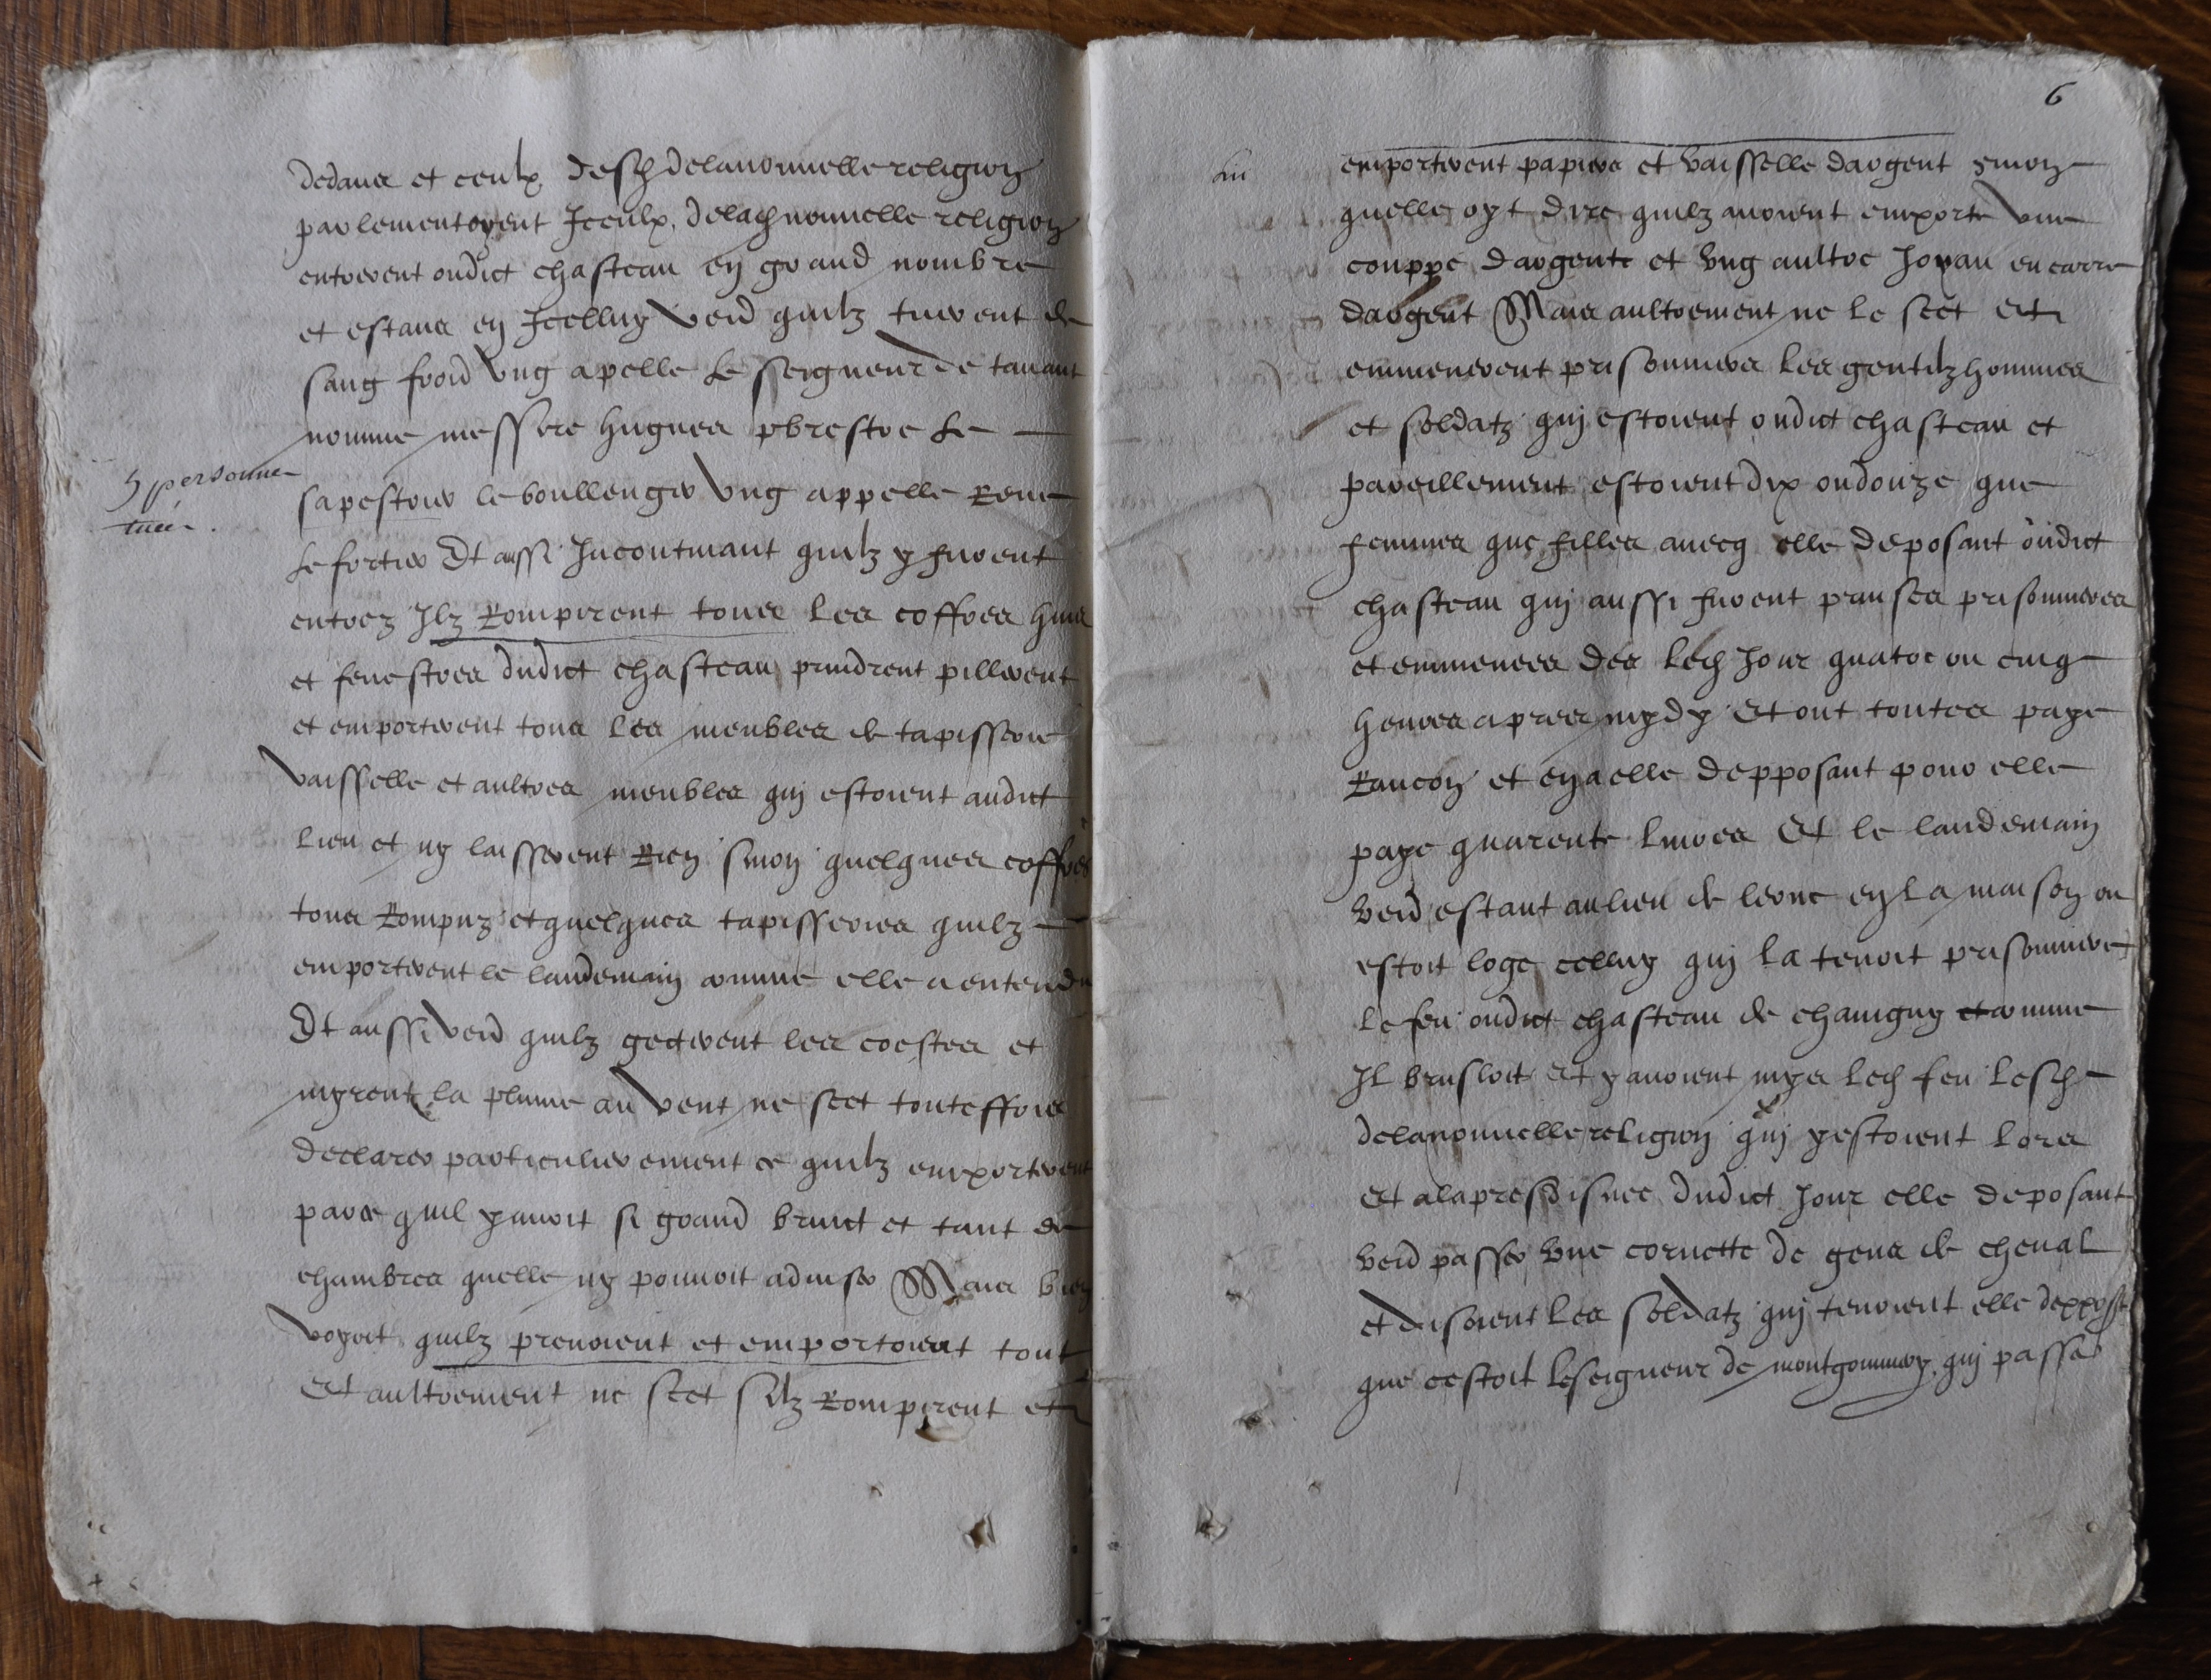 dedans et ceulx desd de la nouvelle religion
parlementoyent Iceulx de lad nouvelle religion
entrerent oudict chasteau en grand nombre
et estans en Icelluy veid quilz tuerent de
sang froid ung apelle Le seigneur de tauant
nomme messire hugues pbrestre Le
sapestoir le boullenger ung appelle Rene
Le fortier Et aussi Incontinant quilz y furent
entrez Ilz Rompirent tous Les coffres huis
et fenestres dudict chasteau prindrent pillerent
et emporterent tous Les meubles de tapisserie
vaisselle et aultres meubles qui estoient audict
Lieu et ny laisserent Rien sinon quelques coffres
tous Rompuz et quelques tapisseries quilz
emporterent le landemain comme elle a entendu
Et aussi veid quilz gecterent les coestes et
myrent la plume au vent ne scet touteffois
declarer particulierement ce quilz emporterent
parce quil y auoit si grand bruict et tant de
chambres quelle ny pouuoit aduiser Mais bien
voyoit quilz prenoient et emportoient tout
Et aultrement ne scet silz Rompirent et
5 personnes
tuees
6
emporterent papiers et vaisselle dargent sinon
quelle oyt dire quilz auoient emporte une
couppe dargent et ung aultre Joyau en carre
dargent Mais aultrement ne le scet Et
emmenerent prisonniers Les gentilz hommes
et soldatz qui estoient oudict chasteau et
pareillement estoient dix ou douze que
femmes que filles auecq elle deposant oudict
chasteau qui aussi furent prinses prisonnieres
et emmenees des led Jour quatre ou cinq
heures apres mydy Et ont toutes paye
Rancon et en a elle depposant pour elle
paye quarente liures Et le landemain
veid estant au lieu de lerne en La maison ou
estoit loge celluy qui la tenoit prisonniere
le feu oudict chasteau de chauigny et comme
Il brusloit Et y auoient mys led feu lesd
de la nouuelle religion qui y estoient lors
Et a lapres disnee dudict Jour elle deposant
veid passer une cornette de gens de cheual
et disoient Les soldatz qui tenoient elle deppost
que cestoit le seigneur de montgommery qui passa